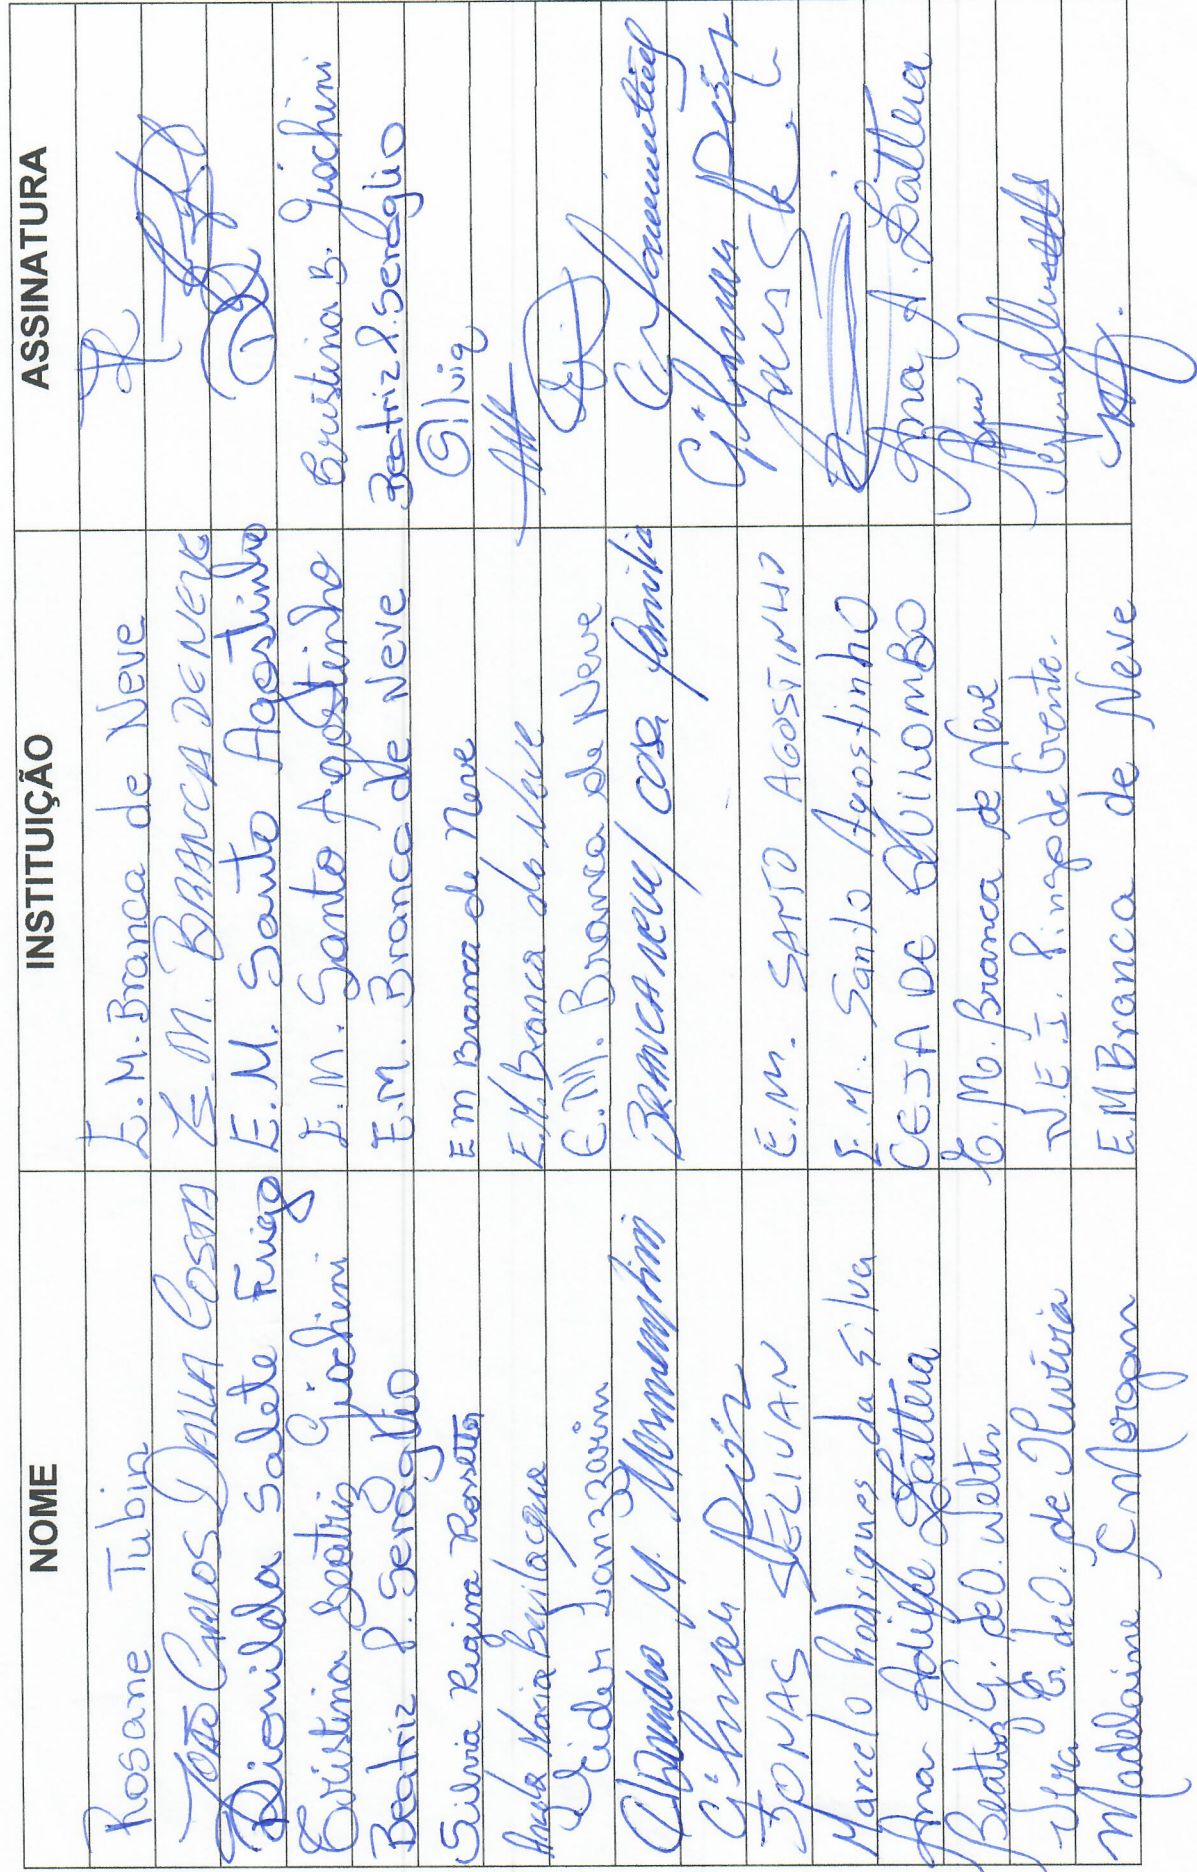 NOME INSTITUIÇÃO ASSINATURA
Rosane Tubin E.M. Branca de Neve
João Carlos Dalla Costa E.M. BRANCA DE NEVE
Dionilda Salete Frigo E.M. Santo Agostinho
Cristina Beatriz Giochini E.M. Santo Agostinho Cristina B. Giochini
Beatriz P. Seraglio E.M. Branca de Neve Beatriz P. Seraglio
Silvia Regina Rossetto E M Branca de Neve Silvia
Angela Maria Bevilacqua E.M. Branca de Neve
Lanzzarin E.M. Branca de Neve
M. BRANCA NEVE/ casa família
Gilmar Gilmar
JONAS SELIVAN E.M. SANTO AGOSTINHO
Marcelo Rodrigues da Silva E.M. Santo Agostinho
Ana Lattera CEJA DE QUILOMBO Ana A. Lattera
Beatriz G. de O. Welter E.M. Branca de Neve
de O. de Oliveira N.E.I. Pingo de Gente.
Madelaine Morgan E.M Branca de Neve